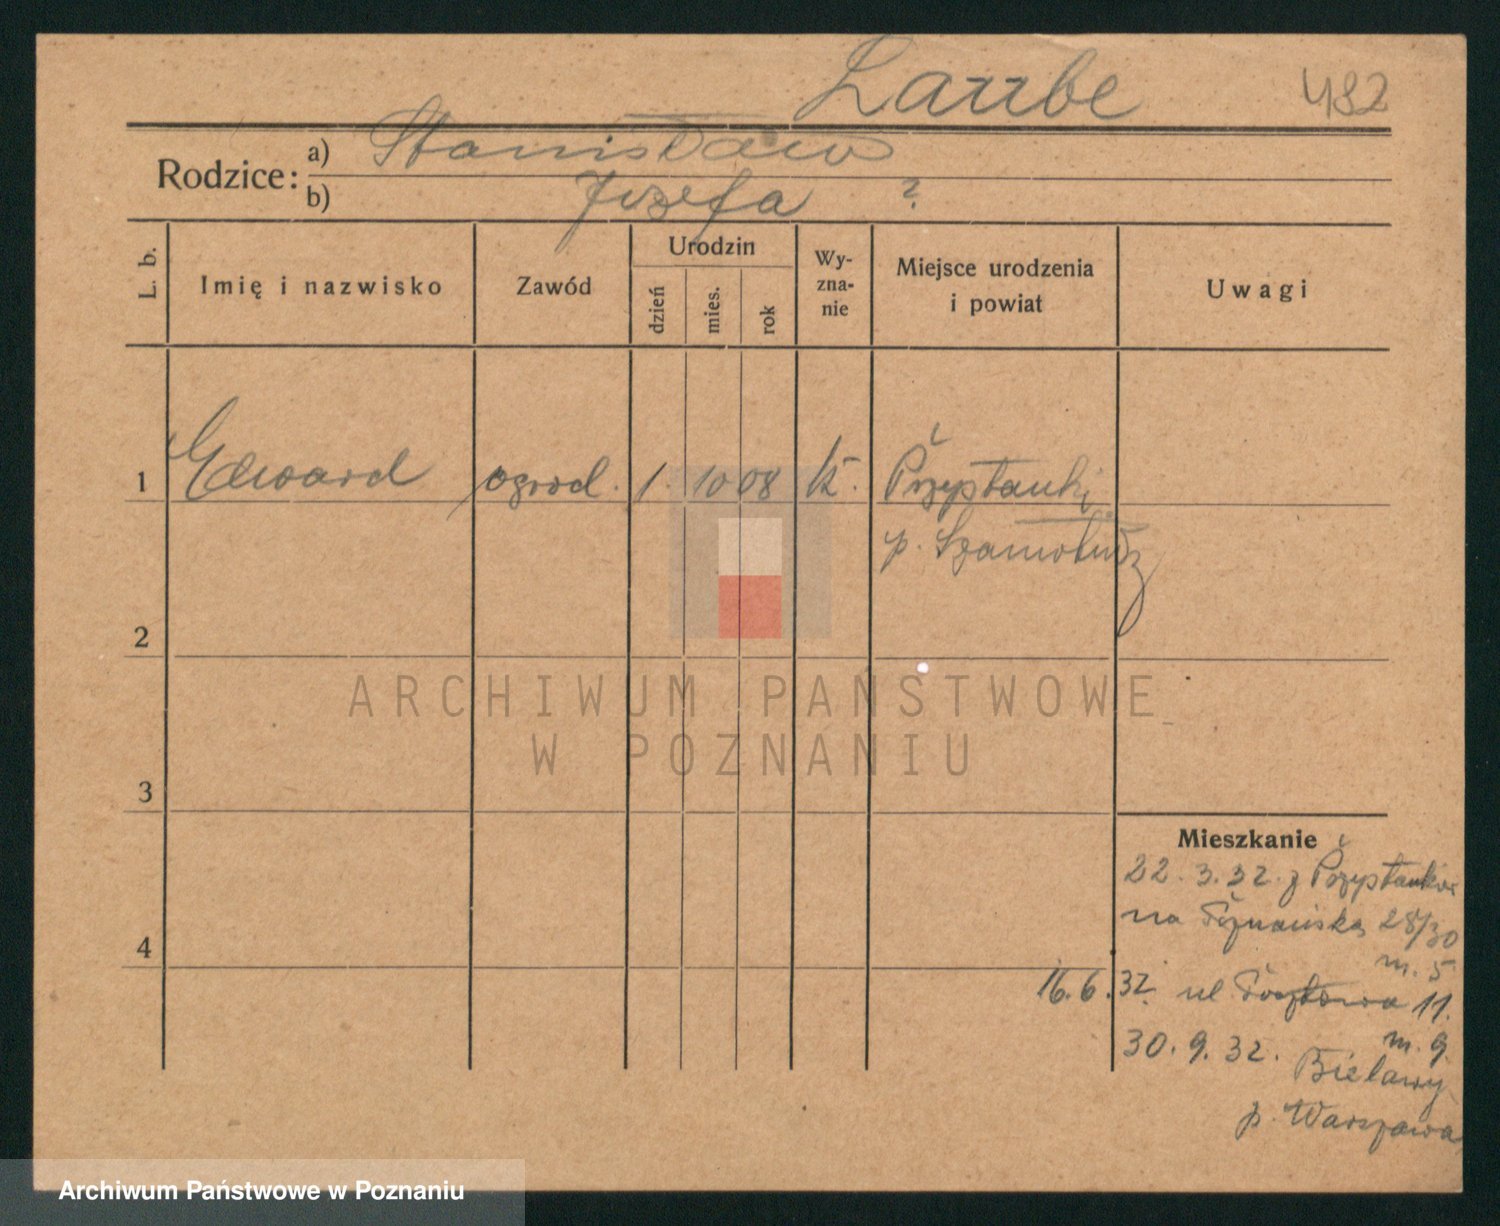 Laube 482
Rodzice: a) Stanisław
b) Józefa ?
L. b. Imię i nazwisko Zawód Urodzin dzień mies. rok Wy-zna-nie Miejsce urodzenia i powiat Uwagi
1 Edward ogrod. 1. 10 08 k. Przystanki
p. Szamotuły
2
ARCHIWUM PAŃSTWOWE
W POZNANIU
3
Mieszkanie
22.3.32. z Przystanków
na Poznańską 28/30
m. 5
4
16.6.32. ul Pocztowa 11.
m. 9.
30.9.32. Bielawy
p. Warszawa
Archiwum Państwowe w Poznaniu